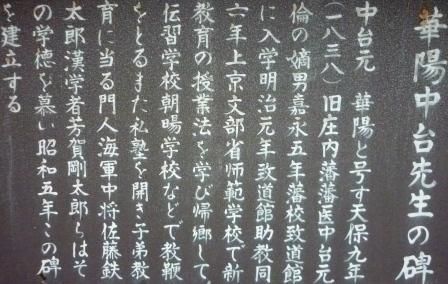 華陽中台先生の碑
中台元 華陽と号す天保九年
(一八三八) 旧庄内藩藩医中台元
倫の嫡男嘉永五年藩校致道館
に入学明治元年致道館助教同
六年上京文部省師範学校で新
教育の授業法を学び帰郷して、
伝習学校朝暘学校などで教鞭
をとるまた私塾を開き子弟教
育に当る門人海軍中将佐藤鉄
太郎漢学者芳賀剛太郎らはそ
の学徳を慕い昭和五年この碑
を建立する